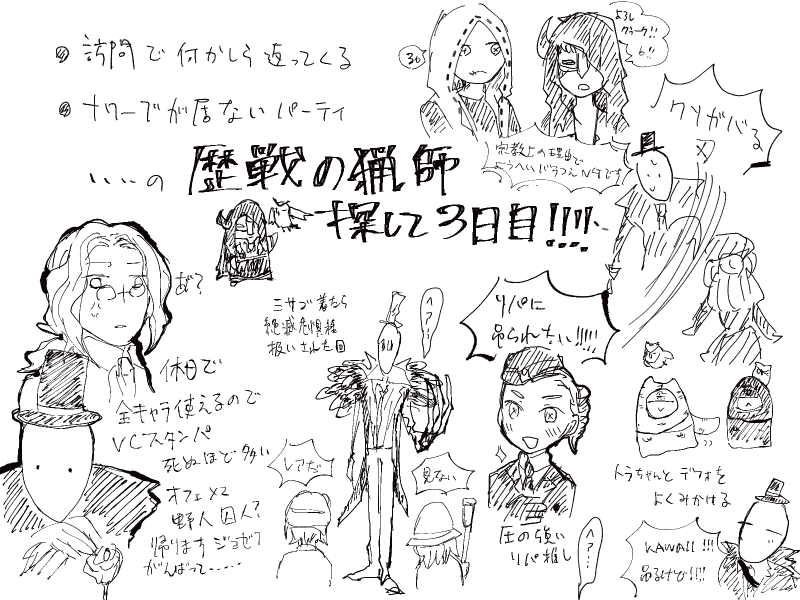 訪問で何かしら返ってくる
ナワーブが居ないパーティ
、、、、の 歴戦の猟師
探して3日目!!!!
よろし
クラーク!!
6!!
36
宗教上の理由で
ようへいドラつんNGです
クソがバる
あ"?
ミサゴ着たら
絶滅危惧種
扱いされた図
へ?…
リパに
吊られたい!!!!!
休日で
全キャラ使えるので
VCスタンパ
死ぬほど多い
オフェメモ
野人 囚人?
帰ります ジョゼフ
がんばって……
レアだ
見ない
圧の強い
リパ推し
へ?…
トラちゃんとデフォを
よくみかける
KAWAII!!!
吊るけど!!!!